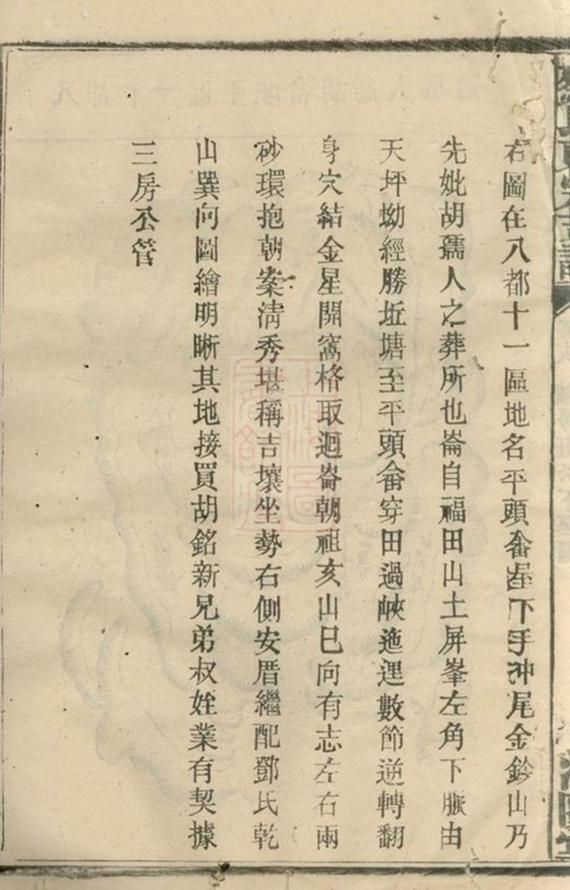 右圖在八都十一區地名平頭畬屋下手沖尾金鈴山乃
先妣胡孺人之葬所也崙自福田山土屏峯左角下脈由
天坪坳經勝坵塘至平頭畬穿田過峽迤邐數節逆轉翻
身穴結金星開窩格取迴崙朝祖亥山巳向有志左右兩
砂環抱朝案清秀堪稱吉壤坐勢右側安厝繼配鄧氏乾
山巽向圖繪明晰其地接買胡銘新兄弟叔姪業有契據
三房公管